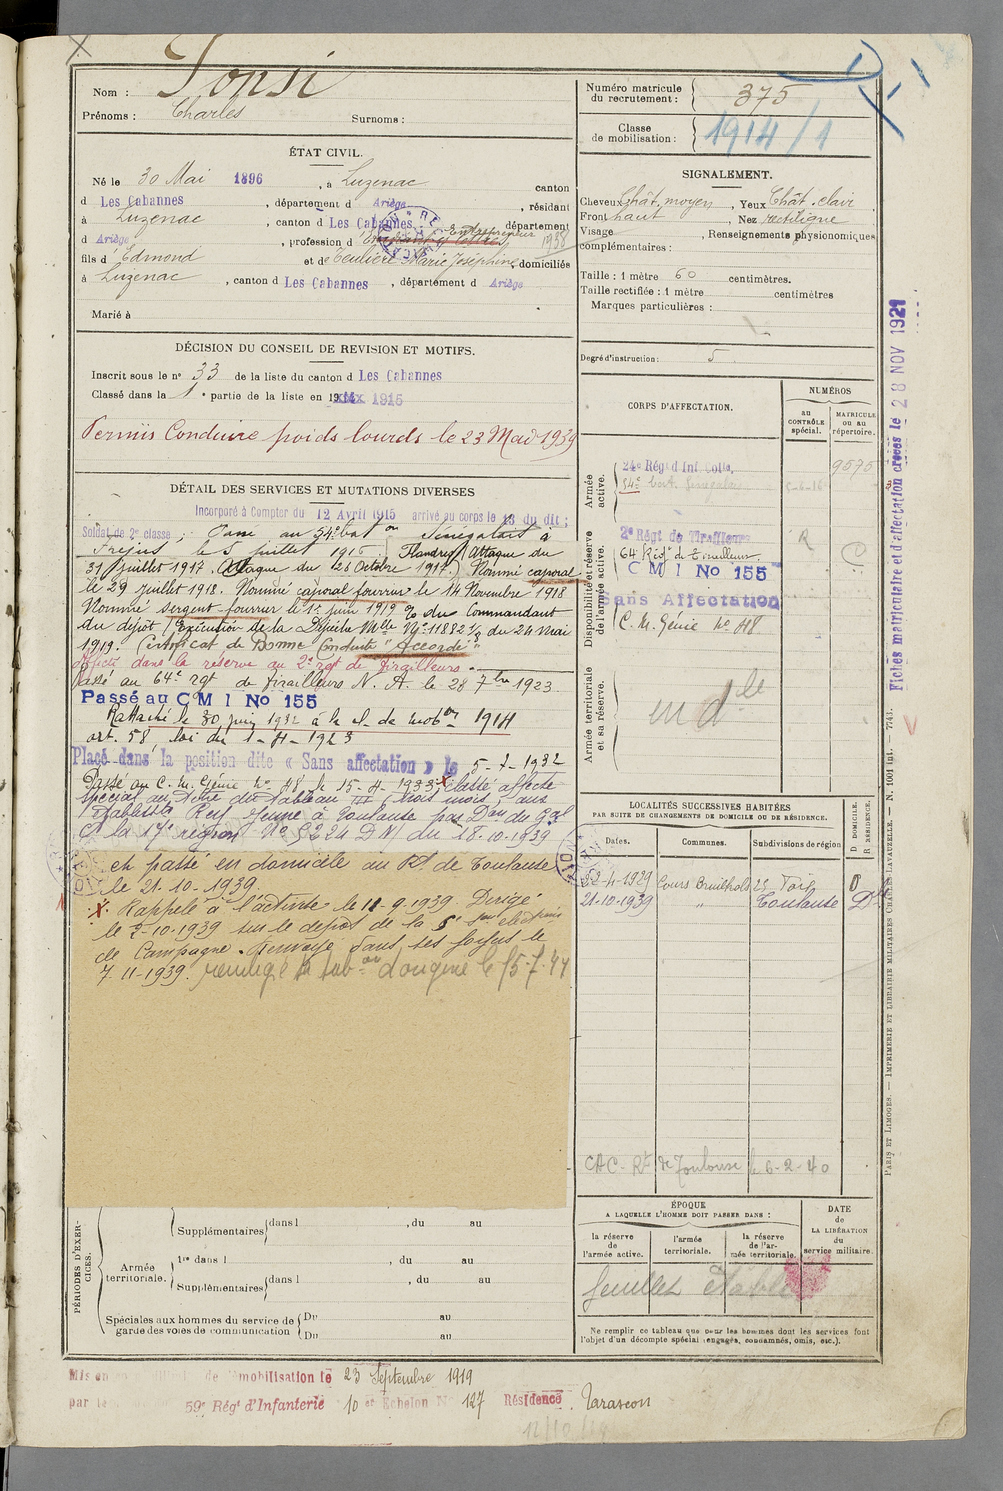 Nom :
Prénoms : Charles Surnoms :
ÉTAT CIVIL.
Né le 30 Mai 1896, à Luzenac canton
d Les Cabannes, département d Ariège, résidant
à Luzenac, canton d Les Cabannes département
d Ariège, profession d Entrepreneur 1938
fils d Edmond et de Teulière Marie Joséphine, domiciliés
à Luzenac, canton d Les Cabannes, département d Ariège
Marié à
DÉCISION DU CONSEIL DE REVISION ET MOTIFS.
Inscrit sous le n° 33 de la liste du canton d Les Cabannes
Classé dans la 1e partie de la liste en 1915
Permis Conduire poids lourds le 23 Mai 1939
DÉTAIL DES SERVICES ET MUTATIONS DIVERSES
Incorporé à Compter du 12 Avril 1915 arrivé au corps le 13 du dit ;
Soldat de 2e classe ; Passé au 54e baton Sénégalais à
Fréjus le 5 juillet 1916. Flandres Attaque du
31 juillet 1917. Attaque du 26 Octobre 1917) Nommé caporal
le 29 juillet 1918. Nommé caporal fourrier le 14 Novembre 1918
Nommé sergent-fourrier le 1er juin 1919 % du Commandant
du dépot (Exécution de la Dépêche Mlle No 11882 1/8 du 24 Mai
1919. Certificat de Bonne Conduite "Accordé"
Affecté dans la réserve au 2e rgt de tirailleurs.
Passé au 64e rgt de tirailleurs N. A. le 28 7bre 1923
Passé au C M I No 155
Rattaché le 30 juin 1932 à la cl. de mobon 1914
art. 58, loi du 1-4-1923
Placé dans la position dite « Sans affectation » le 5-7-1932
Passé au C. M. Génie No 48 le 15-4-1933; classé affecté
spécial au titre du tableau III (trois mois) aux
Etablissts Rey Jeune à Toulouse par Don du Gal
Ct la 17e région No 5224 DN du 18.10.1939
et passé en domicile au Rt de Toulouse
le 21-10-1939.
X. Rappelé à l'activité le 11-9-1939. Dirigé
le 2-10-1939 sur le dépôt de la
de Campagne. Renvoyé dans ses foyers le
7-11-1939. d'origine le 15-7-44
PÉRIODES D'EXERCICES.
Supplémentaires dans l , du au
Armée territoriale.
1re dans l , du au
Supplémentaires dans l , du au
Spéciales aux hommes du service de garde des voies de communication
Du au
Du au
Mis en de mobilisation le 23 Septembre 1919
par le 59e Régt d'Infanterie 10 et Echelon No 127 Résidence Tarascon
Numéro matricule du recrutement : 375
Classe de mobilisation : 1914/1
SIGNALEMENT.
Cheveux Chât. moyen, Yeux Chât. clair
Front haut, Nez rectiligne
Visage , Renseignements physionomiques
complémentaires :
Taille : 1 mètre 60 centimètres.
Taille rectifiée : 1 mètre centimètres
Marques particulières :
Degré d'instruction : 5
CORPS D'AFFECTATION.
NUMÉROS
au CONTRÔLE spécial.
MATRICULE ou au répertoire.
Armée active.
24e Régt d Inf Colle. 9575
54e 
Disponibilité et réserve de l'armée active.
2e Régt de Tirailleurs
64 Régt de Tirailleurs.
C M I No 155
Sans Affectation
C. M. Génie No 48
Armée territoriale et sa réserve.
en dle
LOCALITÉS SUCCESSIVES HABITÉES
PAR SUITE DE CHANGEMENTS DE DOMICILE OU DE RÉSIDENCE.
Dates. Communes. Subdivisions de région
D. DOMICILE. R. RÉSIDENCE.
22-4-1929 D
21-10-1939 " Toulouse
CAC - Rt de Toulouse le 6-2-40
ÉPOQUE
A LAQUELLE L'HOMME DOIT PASSER DANS :
la réserve de l'armée active.
l'armée territoriale.
la réserve de l'armée territoriale.
DATE de LA LIBÉRATION du service militaire.
feuillet
Ne remplir ce tableau que pour les hommes dont les services font
l'objet d'un décompte spécial (engagés, condamnés, omis, etc.).
Fiches matriculaire et d'affectation créées le 28 NOV 1921
PARIS ET LIMOGES. — IMPRIMERIE ET LIBRAIRIE MILITAIRES CHARLES-LAVAUZELLE. — N. 1001 int. 7743.